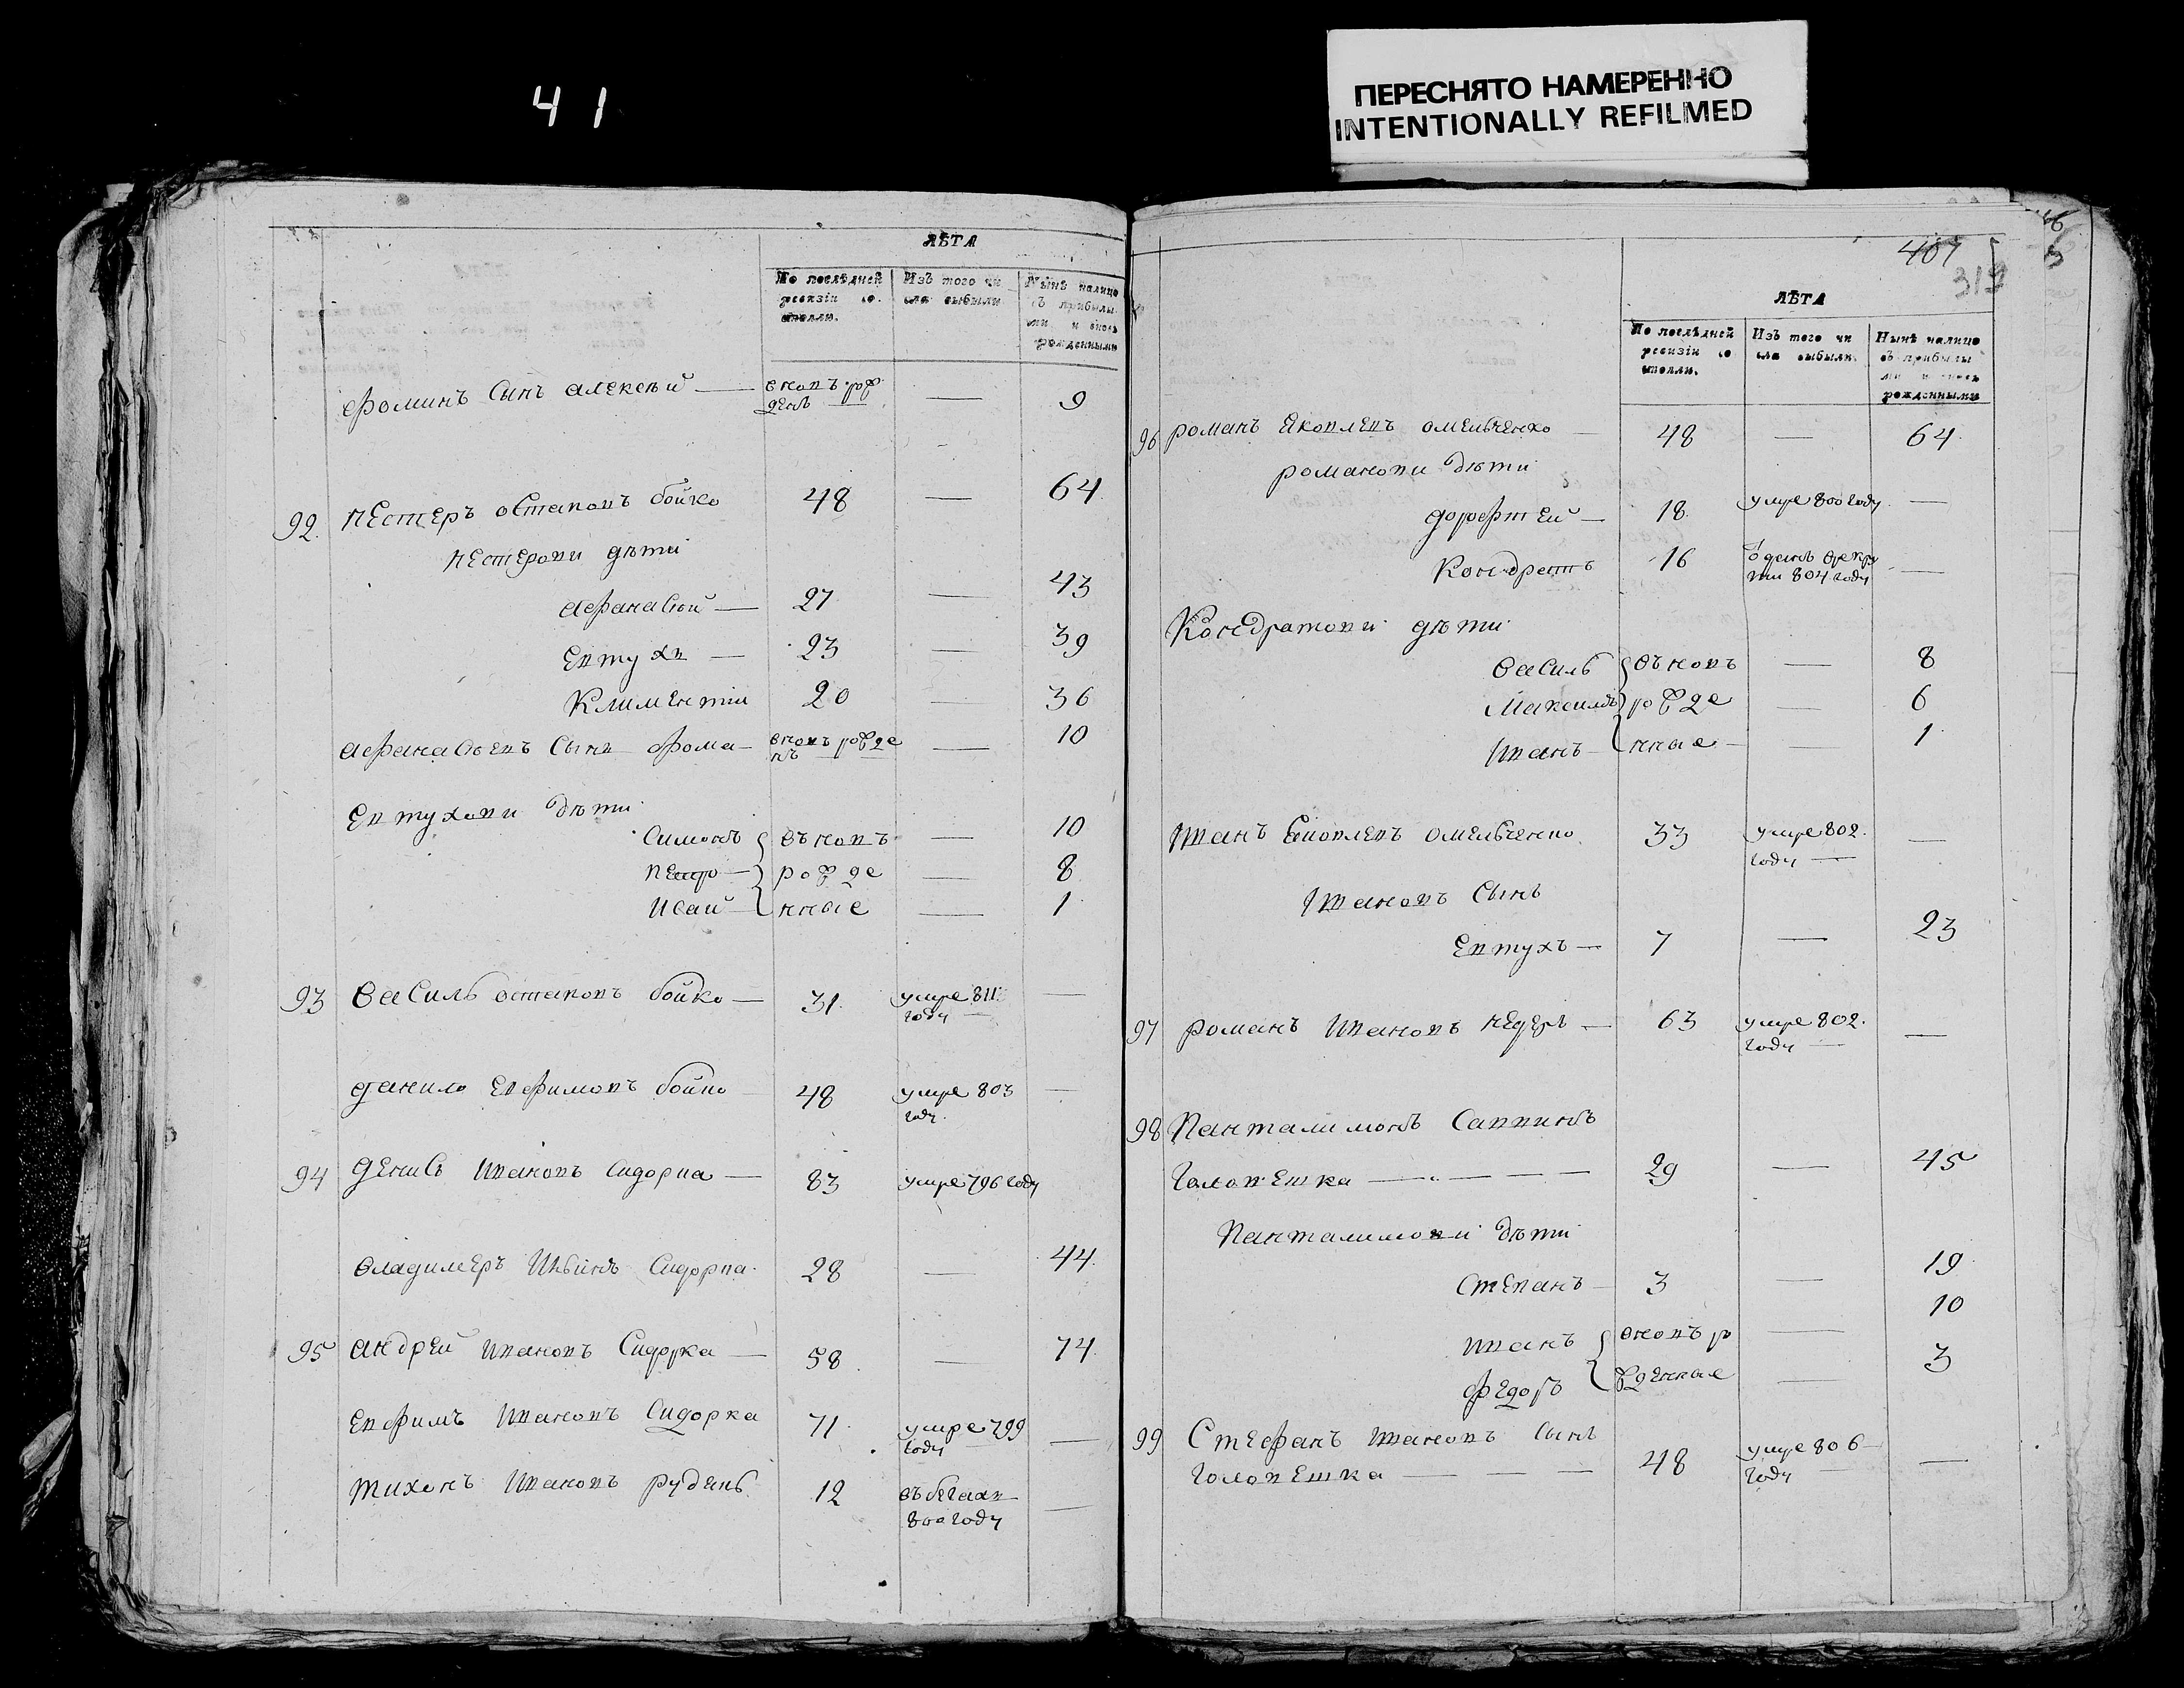 41
ПЕРЕСНЯТО НАМЕРЕННО
INTENTIONALLY REFILMED
ЛѢТА
По послѣдней ревизіи со-
стояло.
Изъ того чи-
сла выбыли
Нынѣ налицо
съ прибылы-
ми и вновь
рожденными
Фоминъ Сынъ алексѣй — вновъ рож
денъ — 9
92. Нестеръ остаповъ бойко 48 — 64
Нестерови дѣти
афанасѣй — 27 — 43
Евтухъ — 23 — 39
Климентій 20 — 36
афанасѣевъ Сынъ Фома — вновъ рожде
нъ — 10
Евтухови дѣти
Симонъ въновъ — 10
Петро — рожде — 8
Исай — нные — 1
93 Василь остаповъ бойко — 31 умре 811
году —
Данило Евфимовъ бойко 48 умре 803
году. —
94 Денисъ Ивановъ Сидорка — 83 умре 796 году
Владимеръ Сидорка 28 — 44
95 андрей Ивановъ Сидорка — 58 — 74
Евфимъ Ивановъ Сидорка 71 умре 799
году —
Тихонъ Ивановъ 12 въ бегахъ
800 году —
407
319
ЛѢТА
По послѣдней
ревизіи со-
стояло.
Изъ того чи-
сла выбыли.
Нынѣ налицо
съ прибылы-
ми и вновь
рожденными
96 Романъ Яковлевъ омельченко — 48 — 64
Романови дѣти
Дорофтей — 18 умре 800 году —
Кондратъ 16 отданъ врекру
ти 804 году —
Кондратови дѣти
Василь въновъ — 8
Максимъ рожде — 6
Иванъ нные — 1
Иванъ Яковлевъ омельченко 33 умре 802
году —
Ивановъ Сынъ
Евтухъ — 7 — 23
97 Романъ Ивановъ — 63 умре 802
году —
98 Панталимонъ Саввинъ
Голопешка — 29 — 45
Панталимови дѣти
Степанъ — 3 — 19
Иванъ вновъ ро — 10
Федоръ жденные — 3
99 Стефанъ Ивановъ Сынъ
Голопешка — — — 48 умре 806
году —